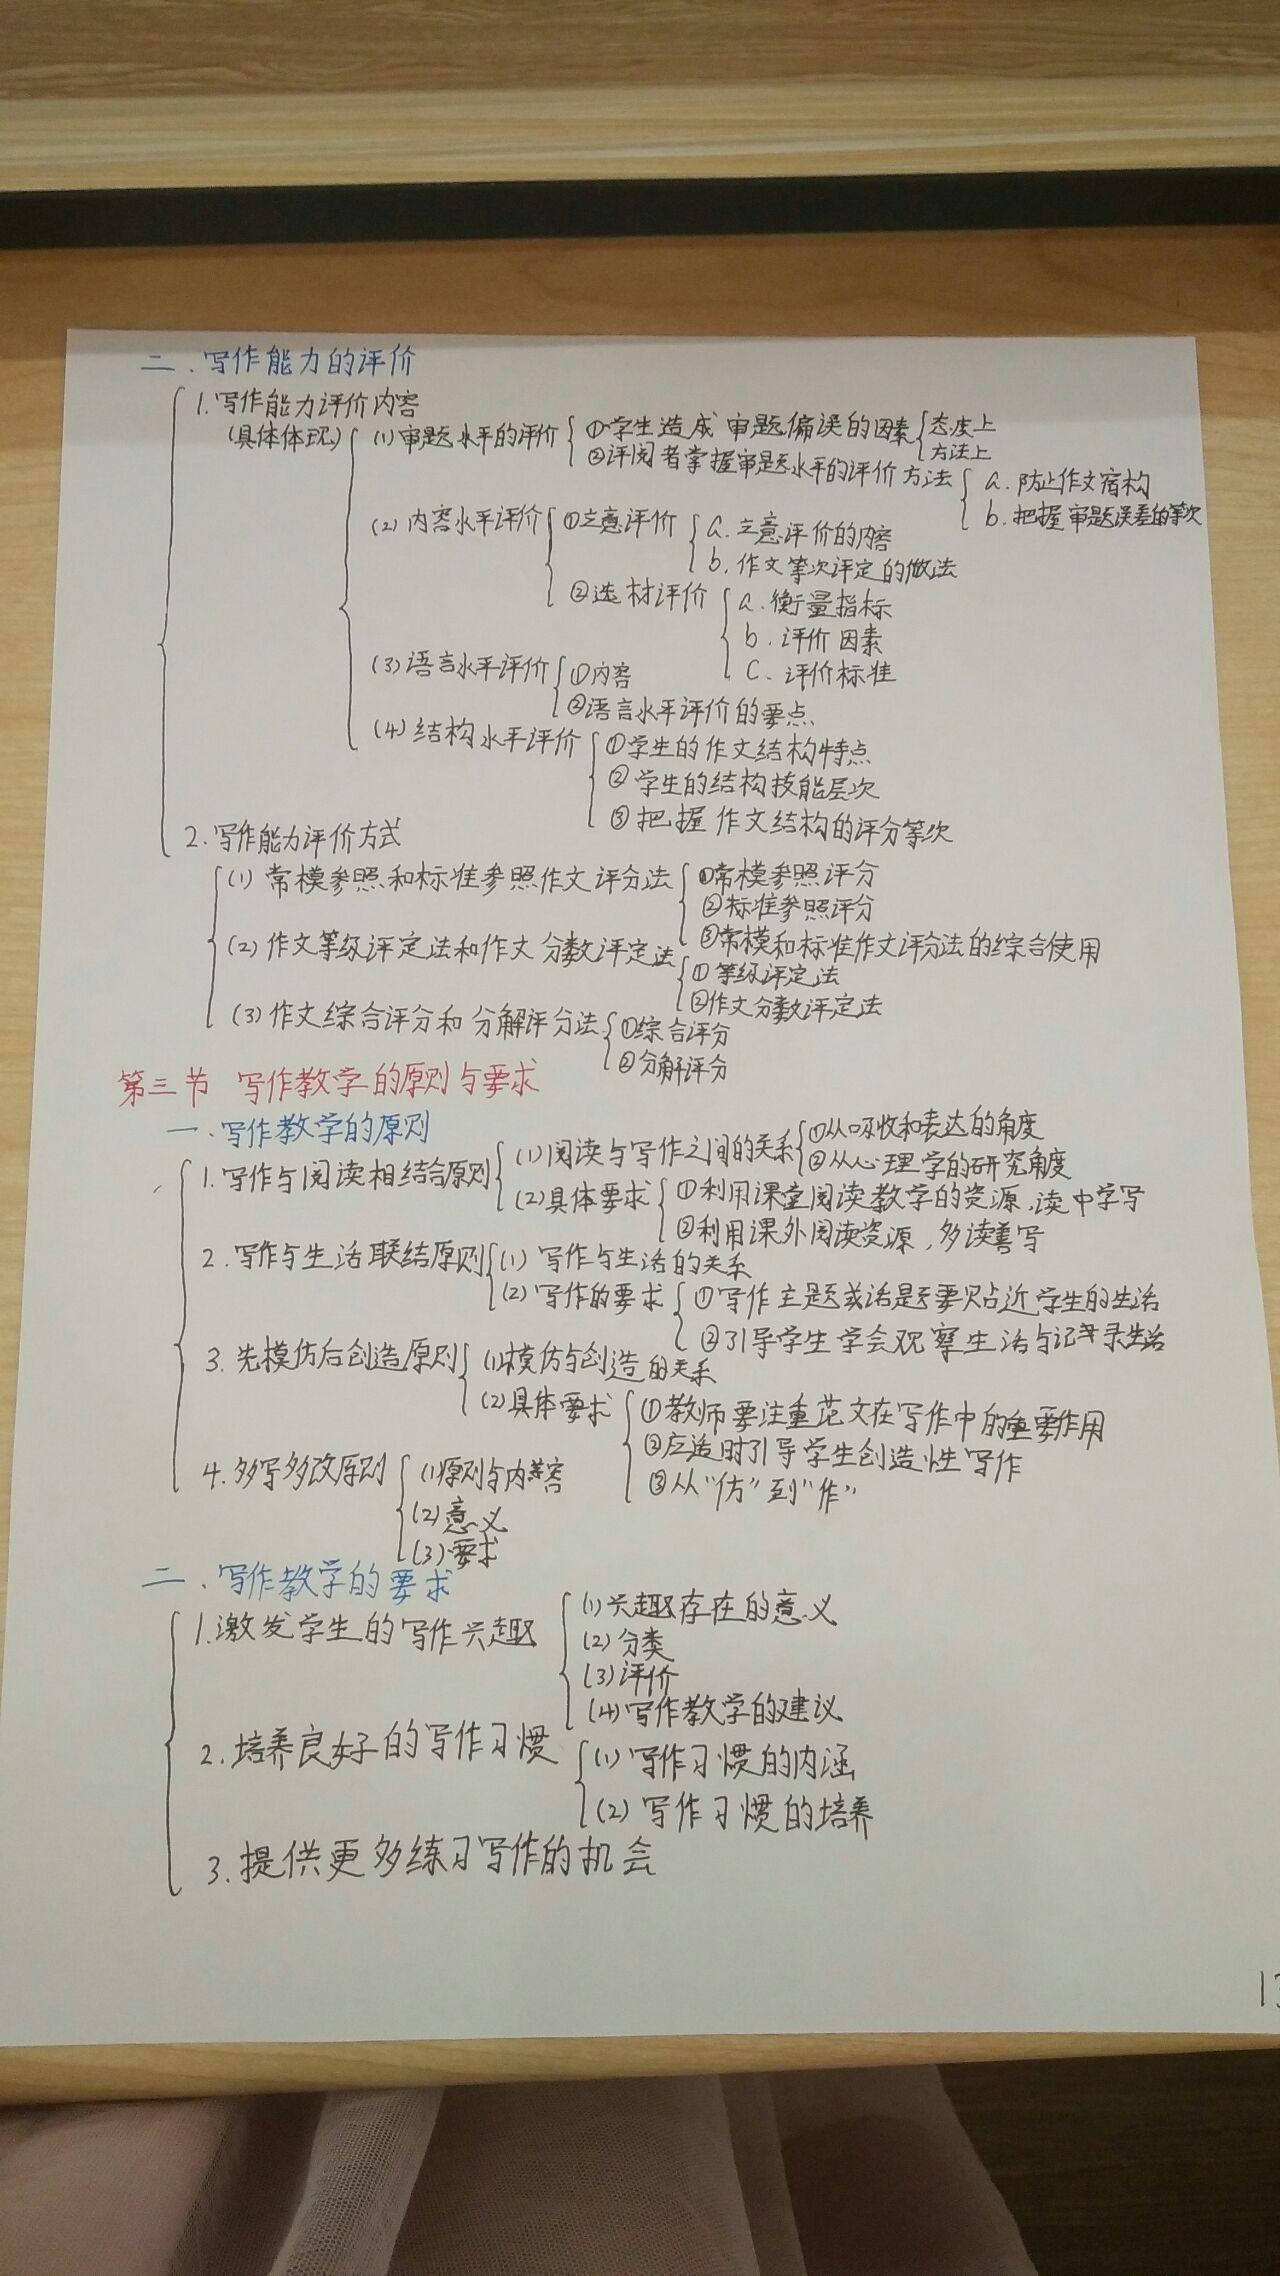 二.写作能力的评价
1.写作能力评价内容
(具体体现)
(1)审题水平的评价
①学生造成审题偏误的因素
态度上
方法上
②评阅者掌握审题水平的评价方法
a.防止作文宿构
b.把握审题误差的等次
(2)内容水平评价
①立意评价
a.立意评价的内容
b.作文等次评定的做法
②选材评价
a.衡量指标
b.评价因素
C.评价标准
(3)语言水平评价
①内容
②语言水平评价的要点
(4)结构水平评价
①学生的作文结构特点
②学生的结构技能层次
③把握作文结构的评分等次
2.写作能力评价方式
(1)常模参照和标准参照作文评分法
①常模参照评分
②标准参照评分
③常模和标准作文评分法的综合使用
(2)作文等级评定法和作文分数评定法
①等级评定法
②作文分数评定法
(3)作文综合评分和分解评分法
①综合评分
②分解评分
第三节 写作教学的原则与要求
一.写作教学的原则
1.写作与阅读相结合原则
(1)阅读与写作之间的关系
①从吸收和表达的角度
②从心理学的研究角度
(2)具体要求
①利用课堂阅读教学的资源,读中学写
②利用课外阅读资源,多读善写
2.写作与生活联结原则
(1)写作与生活的关系
(2)写作的要求
①写作主题或话题要贴近学生的生活
②引导学生学会观察生活与记录生活
3.先模仿后创造原则
(1)模仿与创造的关系
(2)具体要求
①教师要注重范文在写作中的重要作用
②应适时引导学生创造性写作
③从“仿”到“作”
4.多写多改原则
(1)原则与内容
(2)意义
(3)要求
二.写作教学的要求
1.激发学生的写作兴趣
(1)兴趣存在的意义
(2)分类
(3)评价
(4)写作教学的建议
2.培养良好的写作习惯
(1)写作习惯的内涵
(2)写作习惯的培养
3.提供更多练习写作的机会